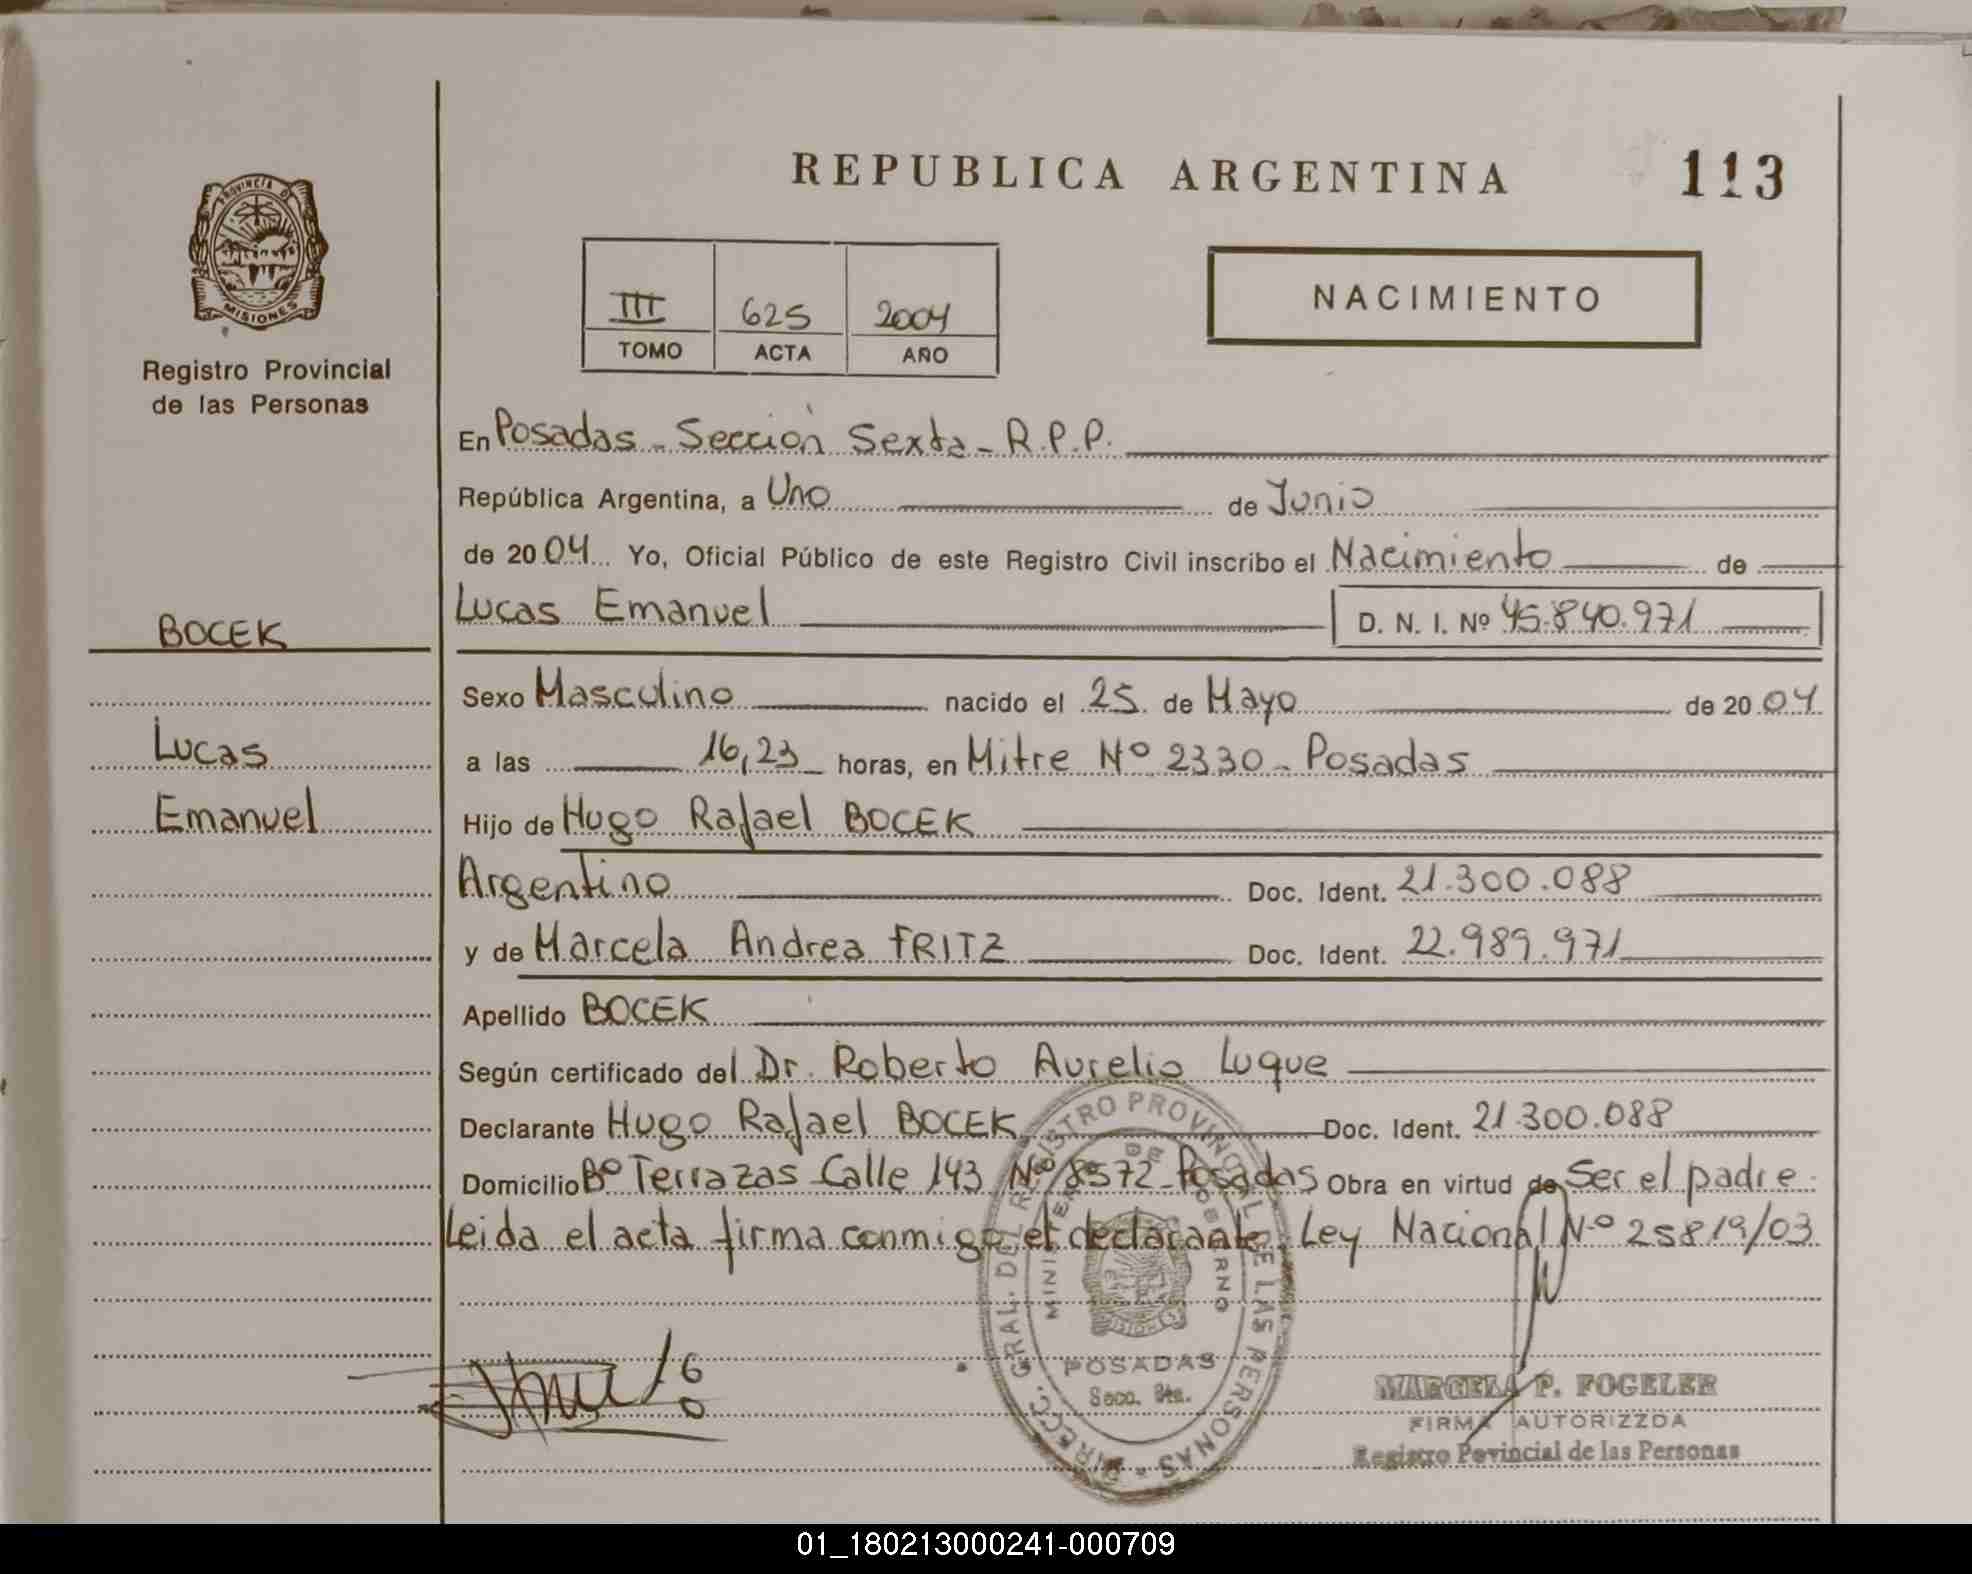 REPUBLICA ARGENTINA
113
PROVINCIA DE
MISIONES
Registro Provincial
de las Personas
III 625 2004
TOMO ACTA AÑO
NACIMIENTO
En Posadas - Sección Sexta - R.P.P.
República Argentina, a Uno de Junio
de 2004 Yo, Oficial Público de este Registro Civil inscribo el Nacimiento de
Lucas Emanuel D. N. I. Nº 45.840.971
BOCEK
Lucas
Emanuel
Sexo Masculino nacido el 25 de Mayo de 2004
a las 16,23 horas, en Mitre Nº 2330 - Posadas
Hijo de Hugo Rafael BOCEK
Argentino Doc. Ident. 21.300.088
y de Marcela Andrea FRITZ Doc. Ident. 22.989.971
Apellido BOCEK
Según certificado del Dr. Roberto Aurelio Luque
Declarante Hugo Rafael BOCEK Doc. Ident. 21.300.088
Domicilio Bº Terrazas Calle 143 Nº 8572 - Posadas Obra en virtud de Ser el padre.
Leida el acta firma conmigo el declarante. Ley Nacional Nº 25819/03
DIRECC. GRAL. DEL REGISTRO PROVINCIAL DE LAS PERSONAS
MINISTERIO DE GOBIERNO
POSADAS
Secc. 6ta.
MARCELA P. FOGELER
FIRMA AUTORIZZDA
Registro Povincial de las Personas
01_180213000241-000709